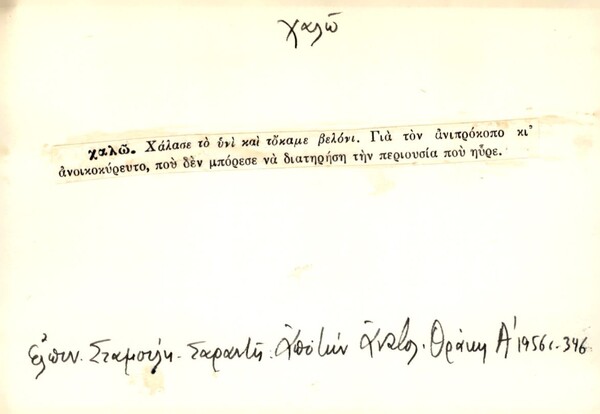 χαλῶ
χαλῶ. Χάλασε τὸ ὑνὶ καὶ τὄκαμε βελόνι. Γιὰ τὸν ἀνιπρόκοπο κι'
ἀνοικοκύρευτο, ποὺ δὲν μπόρεσε νὰ διατηρήση τὴν περιουσία ποὺ ηὗρε.
Ἐλπιν. Σταμούλη - Σαραντῆ. Ἀπὸ τὴν Ἀνατολ. Θράκη Α' 1956 σ. 346